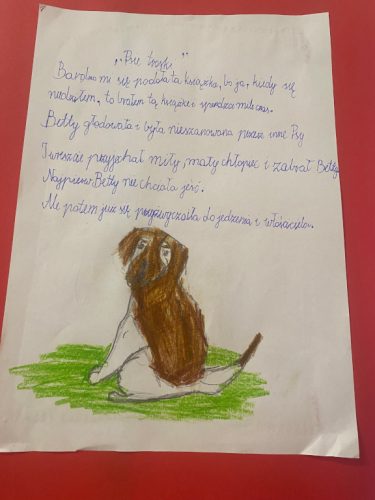 „Psie troski"
Bardzo mi się podobała ta książka, bo ja, kiedy się
nudziłem, to brałem tą książkę i spędzałem miło czas.
Betty głodowała i była nieszanowana przez inne Psy
I wreszcie przyjechał miły mały chłopiec i zabrał Betty
Najpierw Betty nie chciała jeść.
Ale potem już się przyzwyczaiła do jedzenia i właściciela.